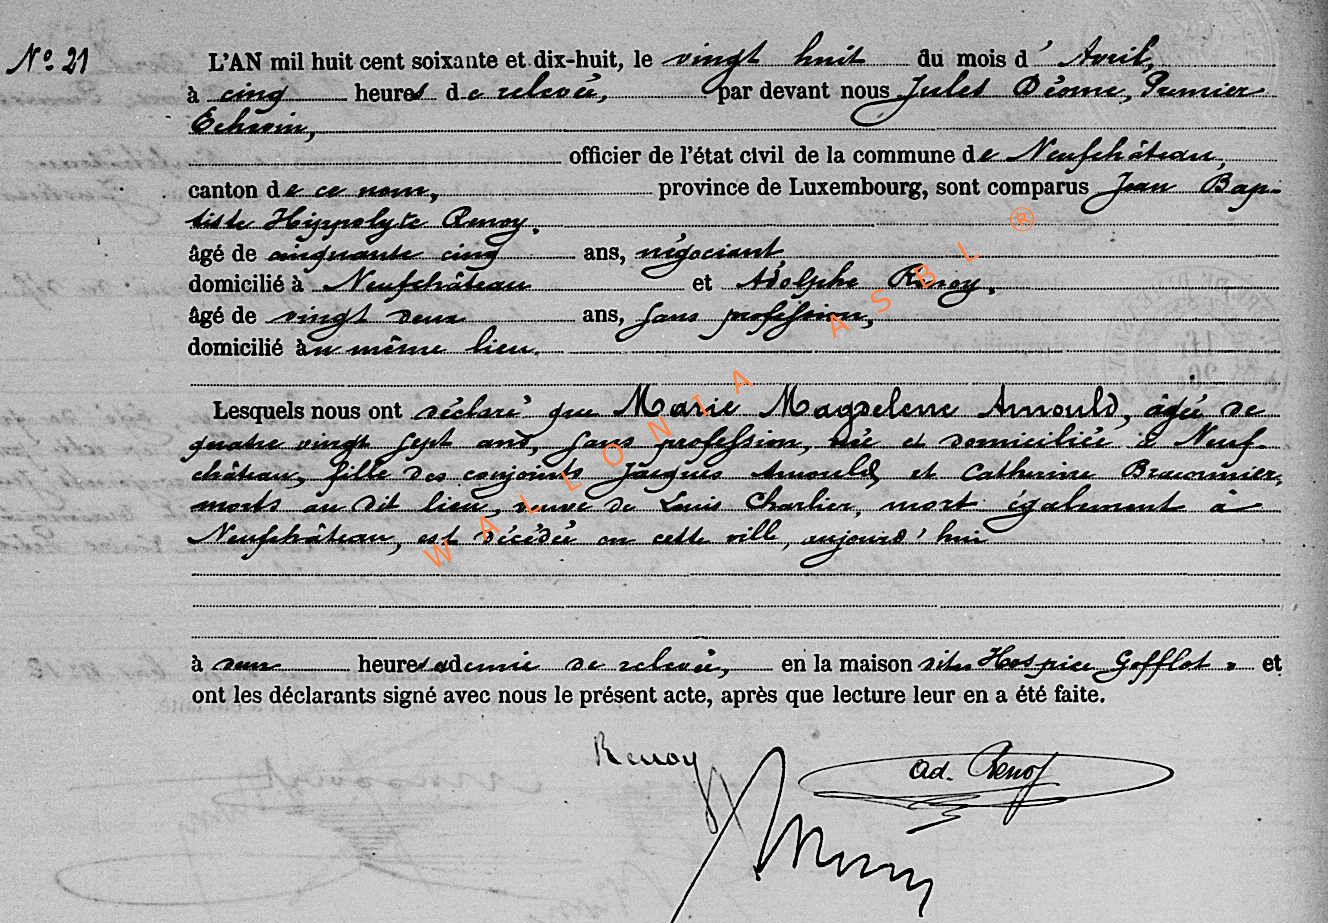 Nº 21
L'AN mil huit cent soixante et dix-huit, le vingt huit du mois d' Avril,
à cinq heures de relevée, par devant nous Jules Déome, Premier
Echevin,
officier de l'état civil de la commune de Neufchâteau,
canton de ce nom, province de Luxembourg, sont comparus Jean Bap-
tiste Hippolyte Renoy,
âgé de cinquante cinq ans, négociant,
domicilié à Neufchâteau et Adolphe Renoy,
âgé de vingt deux ans, sans profession,
domicilié au même lieu.
Lesquels nous ont déclaré que Marie Magdelene Arnould, âgée de
quatre vingt sept ans, sans profession, née et domiciliée à Neuf-
château, fille des conjoints Jacques Arnould et Catherine Braconnier,
morts au dit lieu, veuve de Louis Charlier, mort également à
Neufchâteau, est décédée en cette ville, aujourd'hui
à deux heures et demie de relevée, en la maison dite Hospice Gofflot, et
ont les déclarants signé avec nous le présent acte, après que lecture leur en a été faite.
Renoy
ad. Renoy
WALLONIA ASBL ®